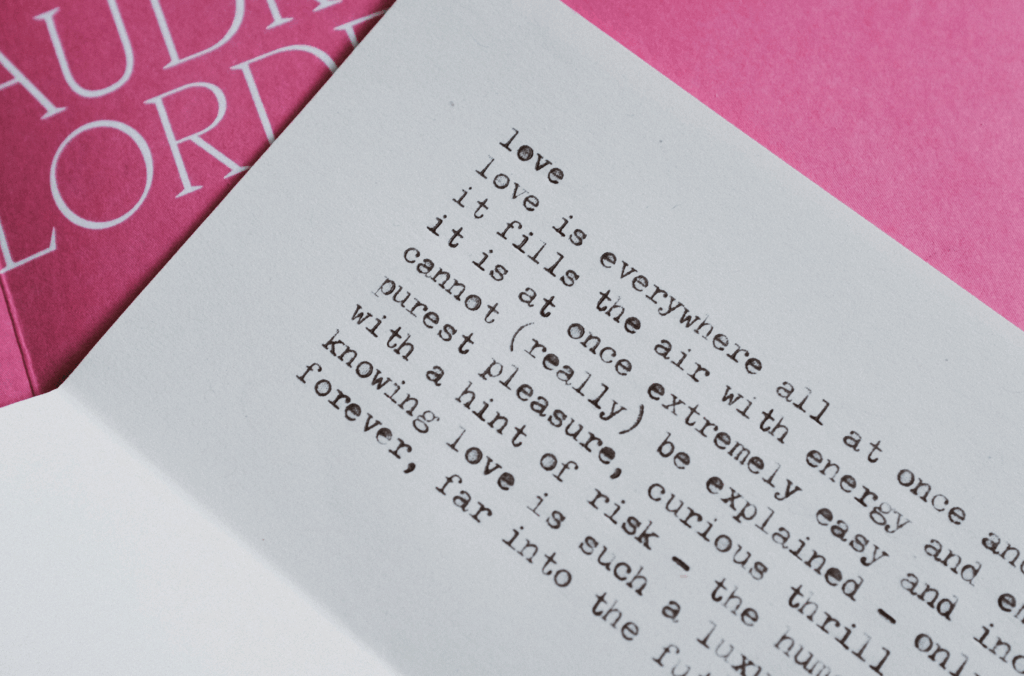 AUDR
LORD
love
love is everywhere all at once and
it fills the air with energy and en
it is at once extremely easy and inc
cannot (really) be explained - onl
purest pleasure, curious thrill
with a hint of risk - the hum
knowing love is such a luxu
forever, far into the fut